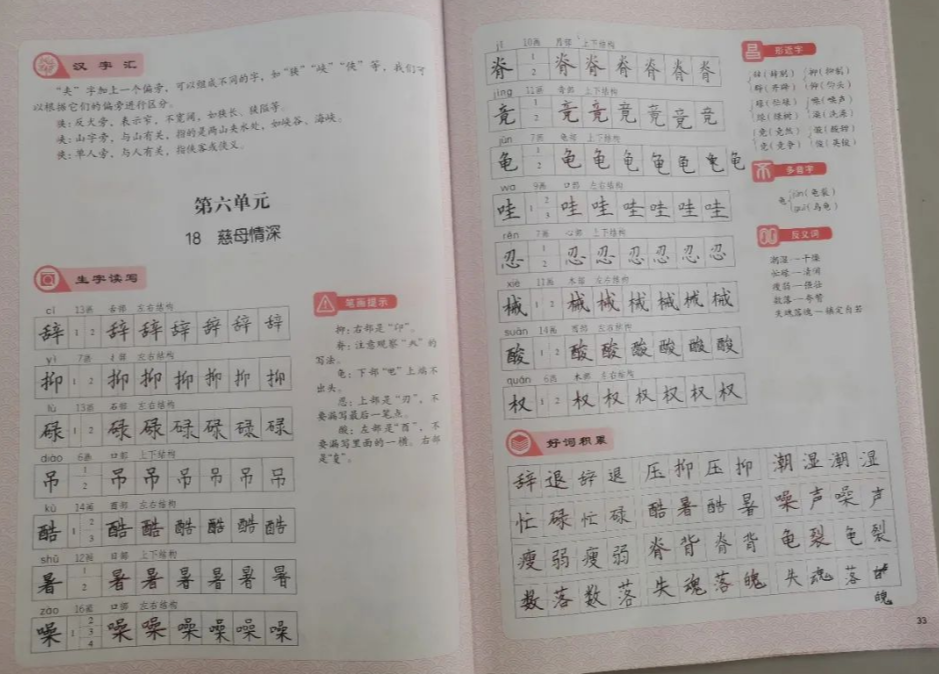 汉字汇
“夹”字加上一个偏旁，可以组成不同的字，如“狭”“峡”“侠”等，我们可
以根据它们的偏旁进行区分。
狭：反犬旁，表示窄，不宽阔，如狭长、狭隘等。
峡：山字旁，与山有关，指的是两山夹水处，如峡谷、海峡。
侠：单人旁，与人有关，指侠客或侠义。
第六单元
18 慈母情深
生字读写
cí 13画 舌部 左右结构
辞 1 2 辞 辞 辞 辞 辞 辞
yì 7画 扌部 左右结构
抑 1 2 抑 抑 抑 抑 抑 抑
lù 13画 石部 左右结构
碌 1 2 碌 碌 碌 碌 碌 碌
diào 6画 口部 上下结构
吊 1 2 吊 吊 吊 吊 吊 吊
kù 14画 酉部 左右结构
酷 1 2 3 酷 酷 酷 酷 酷 酷
shǔ 12画 日部 上下结构
暑 1 2 暑 暑 暑 暑 暑 暑
zào 16画 口部 左右结构
噪 1 2 3 4 噪 噪 噪 噪 噪 噪
笔画提示
抑：右部是“卬”。
脊：注意观察“𠈌”的
写法。
龟：下部“电”上端不
出头。
忍：上部是“刃”，不
要漏写最后一笔点。
酸：左部是“酉”，不
要漏写里面的一横。右部
是“夋”。
jǐ 10画 月部 上下结构
脊 1 2 脊 脊 脊 脊 脊 脊
jìng 11画 音部 上下结构
竟 1 2 竟 竟 竟 竟 竟 竟
jūn 7画 龟部 上下结构
龟 1 2 龟 龟 龟 龟 龟 龟 龟
wa 9画 口部 左右结构
哇 1 2 3 哇 哇 哇 哇 哇 哇
rěn 7画 心部 上下结构
忍 1 2 忍 忍 忍 忍 忍 忍
xiè 11画 木部 左右结构
械 1 2 械 械 械 械 械 械
suān 14画 酉部 左右结构
酸 1 2 酸 酸 酸 酸 酸 酸
quán 6画 木部 左右结构
权 1 2 权 权 权 权 权 权
昌 形近字
辞（辞别） 抑（抑制）
辟（开辟） 仰（仰头）
碌（忙碌） 噪（噪声）
绿（绿树） 澡（洗澡）
竟（竟然） 酸（酸甜）
竞（竞争） 俊（英俊）
不 多音字
龟 jūn（龟裂）
guī（乌龟）
反义词
潮湿—干燥
忙碌—清闲
瘦弱—强壮
数落—夸赞
失魂落魄—镇定自若
好词积累
辞退 辞退 压抑 压抑 潮湿 潮湿
忙碌 忙碌 酷暑 酷暑 噪声 噪声
瘦弱 瘦弱 脊背 脊背 龟裂 龟裂
数落 数落 失魂落魄 失魂落
魄
33